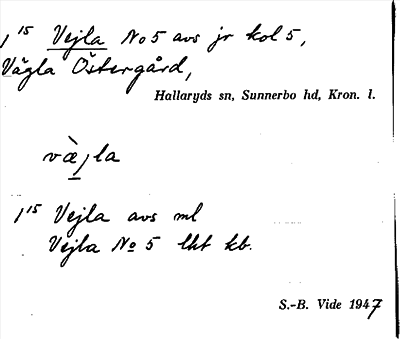 1¹⁵ Vejla No 5 avs jr kol 5,
Vägla Östergård,
Hallaryds sn, Sunnerbo hd, Kron. l.
væ̀jla
1¹⁵ Vejla avs ml
Vejla No 5 lht kb.
S.-B. Vide 1947